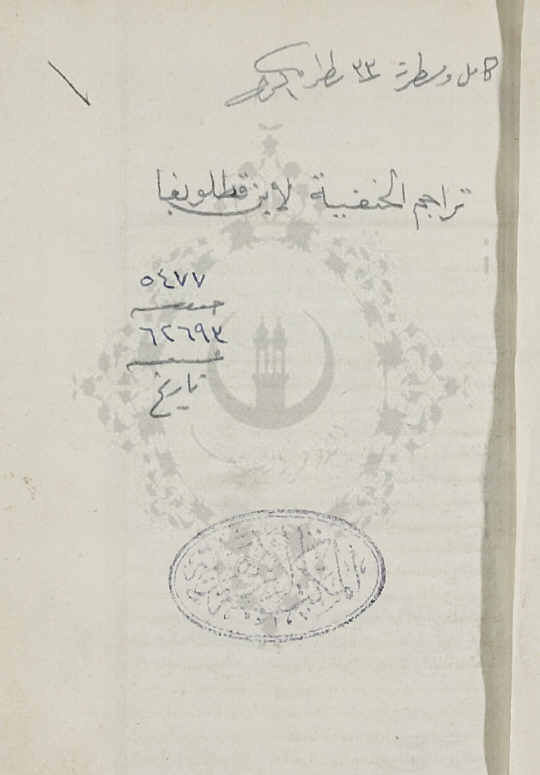 كامل ومسطرته ٣٣ سطر
تراجم الحنفية لابن قطلوبغا
٥٤٧٧
٦٢٦٩٣
تاريخ